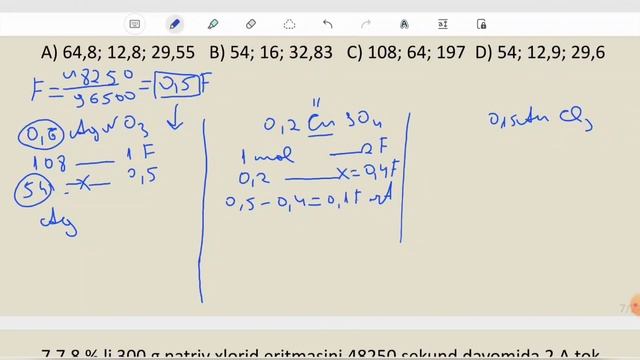 A) 64,8; 12,8; 29,55 B) 54; 16; 32,83 C) 108; 64; 197 D) 54; 12,9; 29,6
F = 48250 / 96500 = 0,5 F
0,6 AgNO3
108 — 1 F
54 = x — 0,5
Ag
II
0,2 CuSO4
1 mol — 2 F
0,2 — x = 0,4 F
0,5 - 0,4 = 0,1 F
0,15 Au Cl3
7/
7.7,8 % li 300 g natriy xlorid eritmasini 48250 sekund davomida 2 A tok